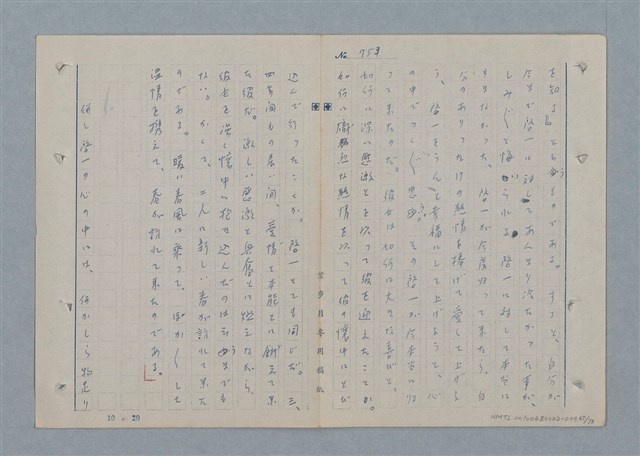 No 753
を知ることも出来るのである。すると、自分が
今まで啓一に対してあんまり冷たかった事が、
しみじみと悔られる。啓一に対して本当に
すまなかった。啓一が今度帰って来たら、自
分のありったけの熱情を捧げて愛して上げよ
う、啓一をうんと幸福にして上げようと、心
の中でつくづく思ふ。その啓一が今本当に帰
って来たのだ。彼女は如何に大きな喜びと、
如何に深い感激とを以って彼を迎えたことか。
如何に熾烈な熱情を以って彼の懐中にとび
込んで行ったことか。啓一とても同じだ。三、
四年間もの長い間、愛情と本能とに飢えて来
た彼だ。激しい感激と興奮とに燃えながら、
彼女を深く懐中に抱き込んだのは云ふまでも
ない。かくて、二人に新しい春が訪れて来た
のである。暖い春風に乗って、ぽか〱した
温情を携えて、春が訪れて来たのである。
併し啓一の心の中には、何かしら物足り
10×20